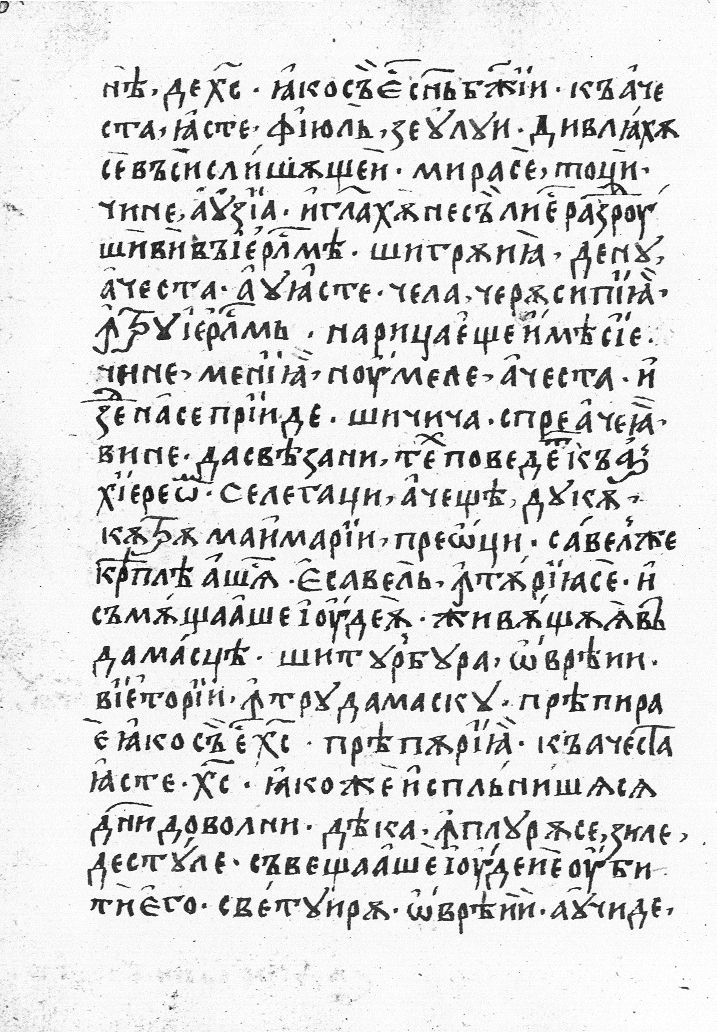 нѣ, де х҃с · ꙗко съ е҆ сн҃ь бж҃їи · къ аче
ста, ꙗсте, фїюль, зеꙋлꙋи · дивлꙗхѫ
се въси слишѫщеи · мирасе, тоци ·
чине, аꙋзїа · и глахѫ не съ ли е разроу
шиви въ іерл҃мѣ · ши грѫиꙗ, денꙋ,
ачеста · аꙋ ꙗсте · чела, черѫсипїꙗ,
ꙟтрꙋ іерл҃мь · нарицаеще имѣ сїе ·
чине, менїꙗ, ноумеле, ачеста · и
зе на се прїиде · ши чича · спре ачеꙗ,
вине · да свѣзани, тѣх поведет къ
хїереѡм · се легаци, ачещѣ, дꙋкѫ,
кѫтрѫ маи марїи, преѡци · савел же
крѣплѣашеѧ · е савель, ꙟтѫрїꙗсе · и
съмѫщааше іоудеѫ · живѫщѫѧ въ
дамасцѣ · ши тꙋрбꙋра, ѡврѣии ·
вїеторїи, ꙟтрꙋ дамаскꙋ · прѣпира
е ꙗко съ е х҃с · прѣпѫрїꙗ · къ ачеста
ꙗсте · х҃с · ꙗкоже испльнишѫсѧ
дн҃и доволни · дѣка, ꙟплꙋрѫсе, зиле,
дестꙋле · съвещааше іоудеие оуби
ти его · светꙋирѫ · ѡврѣии · аꙋчиде,